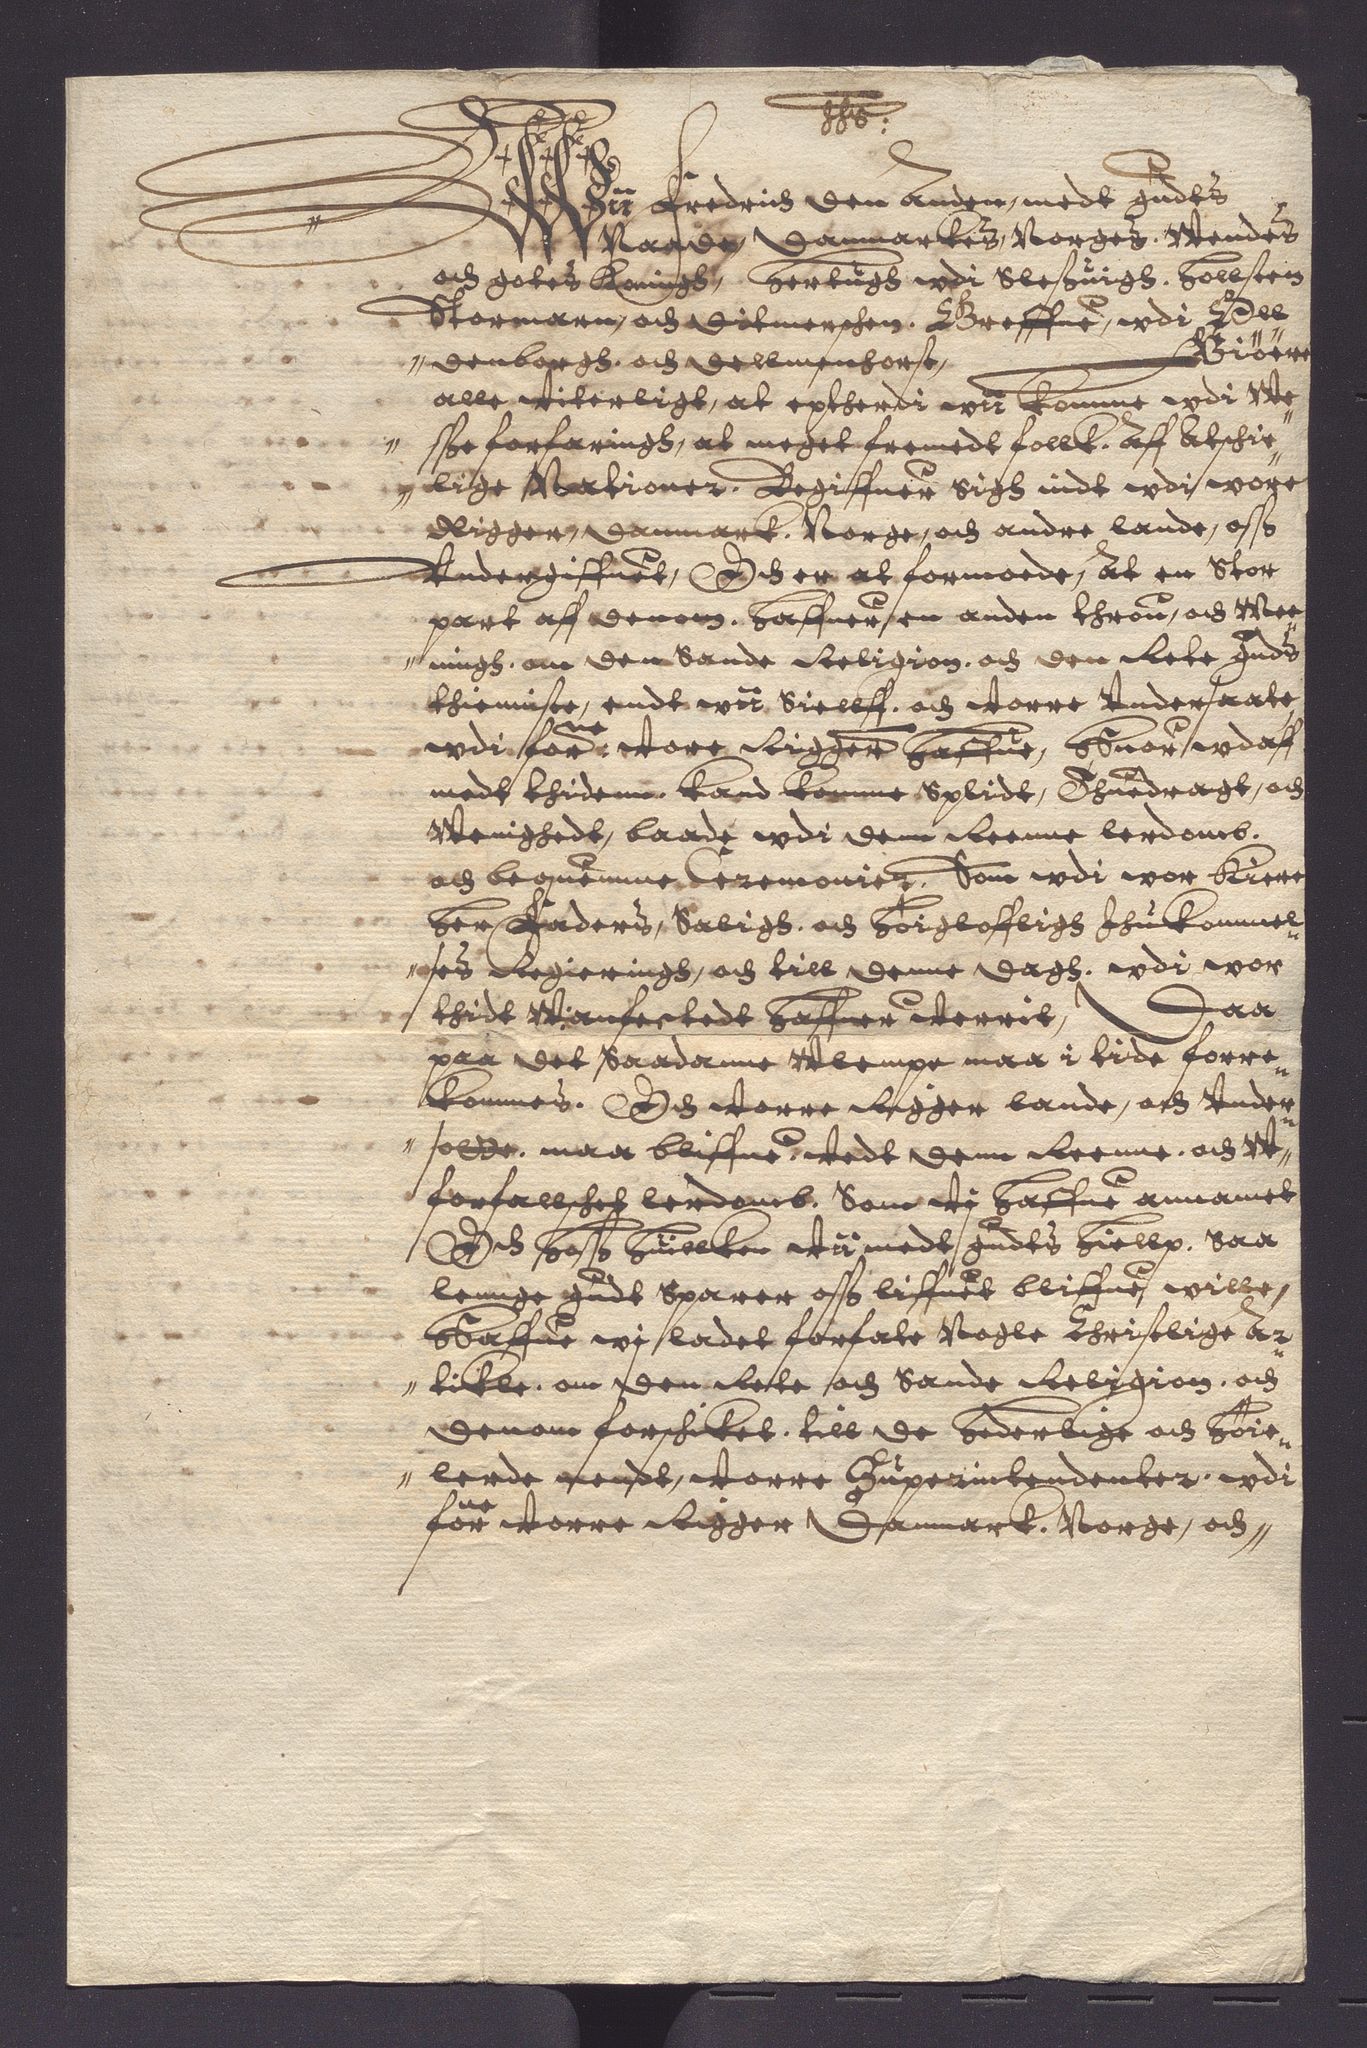 Jhs:
Wii Fredrich den Anden, medt gudts
Naade, Danmarkes, Norges, Wendes
och gotes Koningh, Hertugh wdi Slesuigh. Hollsten
Stormarn, och Ditmerschen. Greffue, wdi Oll
denborgh. och Dellmenhorst, Giöere
alle viterligt, at eptherdi wii komme wdi We
sse forfaringh, at meget fremedt follk. Aff Atschie
lige Nationer. Begiffuer sigh indt wdi wore
Rigger, Danmark. Norge, och andre lande, oss
Vndergiffuet, Och er at formoede, At en Stor
part aff denom. haffuer en anden throu, och Mee
ningh. om den Sande Religion. och den Rete guds
thienniste, endt wii Siellff. och vorre Vndersaate
wdi forne: vore Rigger haffue, Huor wdaff
medt thidenn. kand komme Splidt, Thuedragt, och
Wenighedt, baade wdi denn Reenne lerdomb.
och bequemme Ceremonier. Som wdi wor kiere
Her Faders, Saligh. och höigloffligh Jhukommel
ses Regieringh, och till denne dagh. wdi wor
thidt Wanfectedt haffuer verrit, Daa
paa det Saadanne Wlempe maa i tide forre
kommes. Och vorre Rigger lande, och Vnder
sotte. maa bliffue. vedt denn Reenne. och W
forfallsched lerdomb. Som vj haffue annamet
Och hoss huillken vii medt gudts hiellp. Saa
lennge gudt Sparer oss liffuet bliffue wille,
Haffue wj ladet forfate Nogle Christlige Ar
tikle. om den Rete och Sande Religion. och
denom forschiket. till de hederlige och höie
lerde mendt, vorre Superintendenter. wdi
forne vorre Rigger Danmark. Norge, och